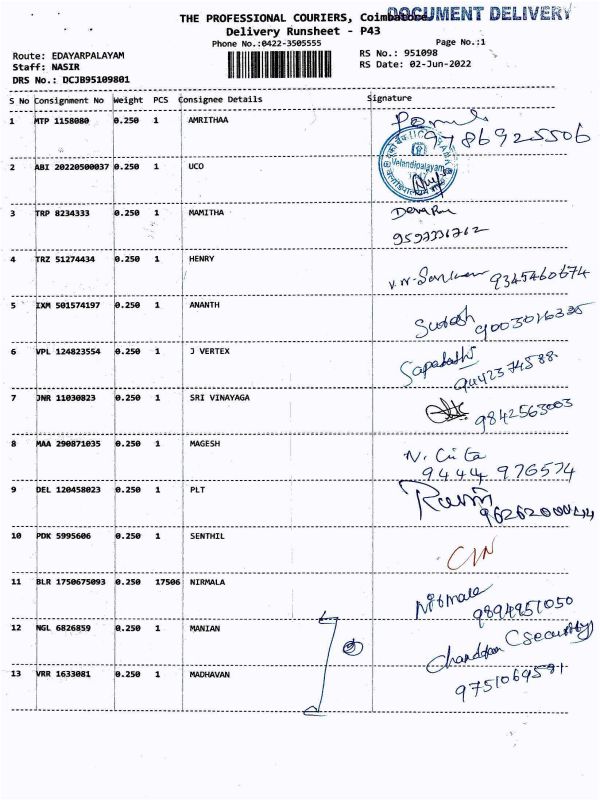 DOCUMENT DELIVERY
THE PROFESSIONAL COURIERS, Coimbatore
Delivery Runsheet - P43
Phone No.:0422-3505555
Page No.:1
Route: EDAYARPALAYAM
RS No.: 951098
Staff: NASIR
RS Date: 02-Jun-2022
DRS No.: DCJB95109801
S No Consignment No Weight PCS Consignee Details Signature
1 MTP 1158080 0.250 1 AMRITHAA
9786925506
2 ABI 20220500037 0.250 1 UCO
Velandipalayam
3 TRP 8234333 0.250 1 MAMITHA
4 TRZ 51274434 0.250 1 HENRY
9345460674
5 IXM 501574197 0.250 1 ANANTH
Suresh
6 VPL 124823554 0.250 1 J VERTEX
9442374588
7 JNR 11030823 0.250 1 SRI VINAYAGA
9842563003
8 MAA 290871035 0.250 1 MAGESH
9444 976574
9 DEL 120458023 0.250 1 PLT
10 PDK 5995606 0.250 1 SENTHIL
11 BLR 1750675093 0.250 17506 NIRMALA
Nirmala
9894951050
12 NGL 6826859 0.250 1 MANIAN
(Security)
13 VRR 1633081 0.250 1 MADHAVAN
9751069581